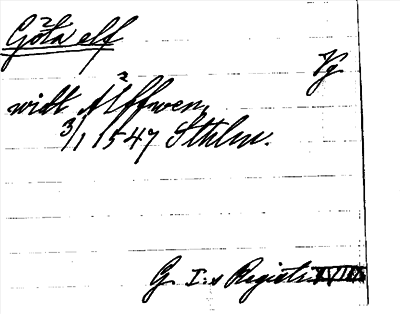 Göta elf
Vg
widt Älffwen,
3/1 1547 Sthlm.
G. I:s Registr.